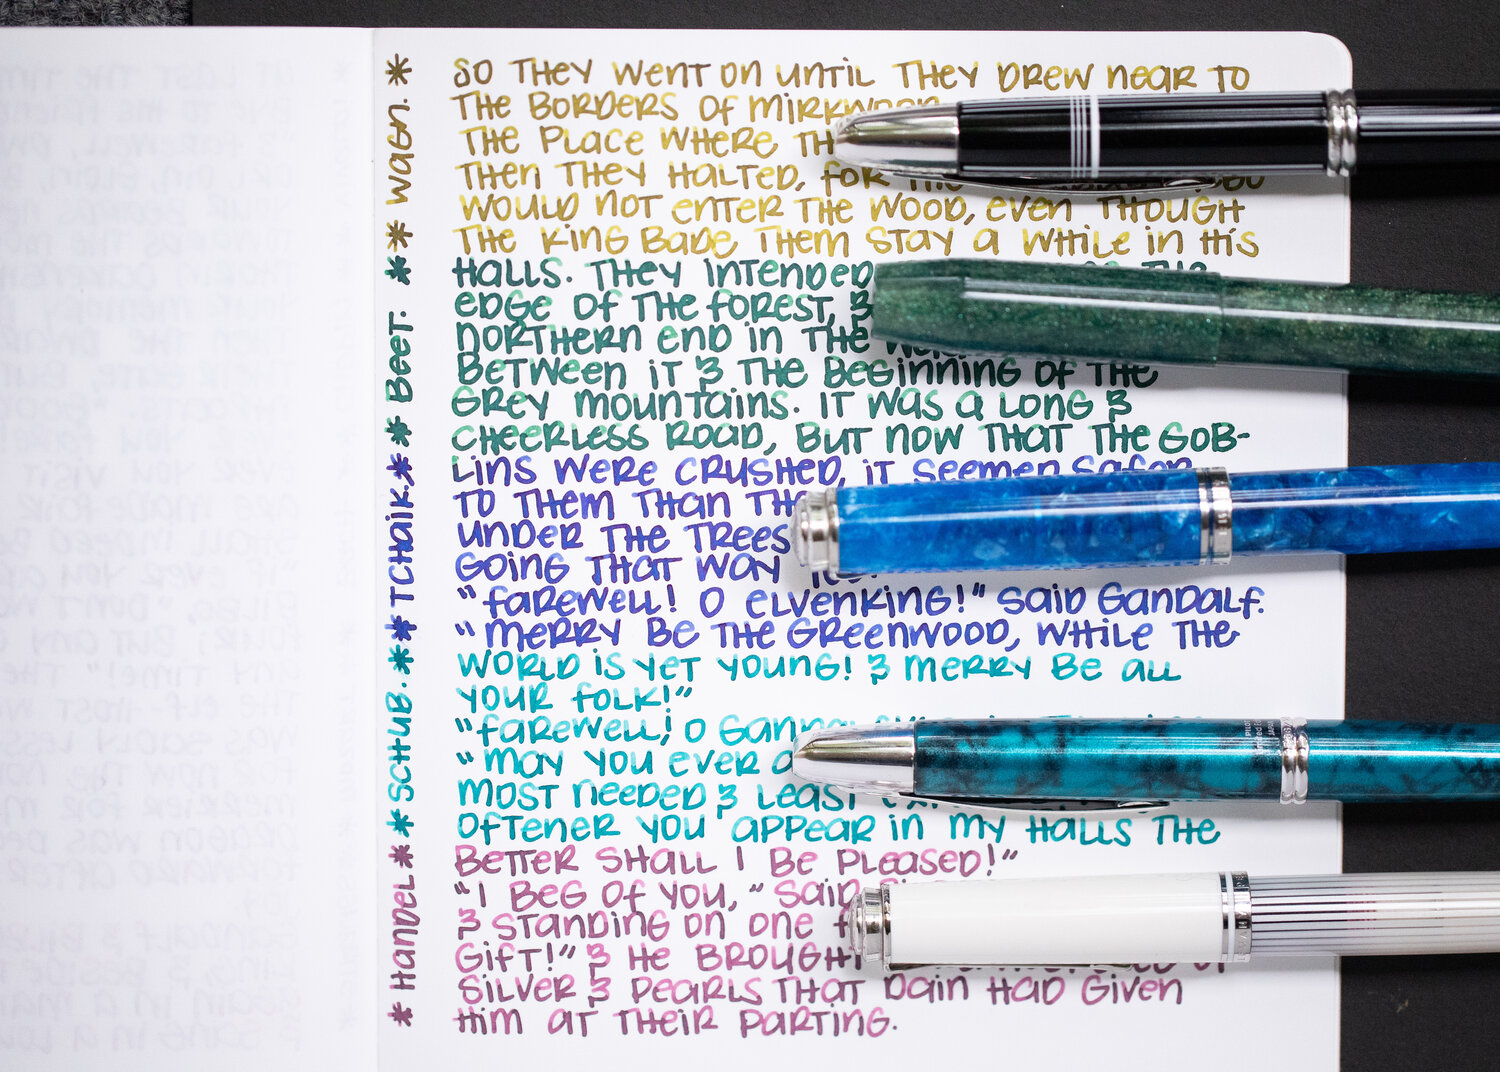 * WAGN. *
* BEET. *
* TCHAIK. *
* SCHUB. *
* HANDEL *
SO THEY WENT ON UNTIL THEY DREW NEAR TO
THE BORDERS OF MIRKWOOD
THE PLACE WHERE
THEN THEY HALTED, FOR THE
WOULD NOT ENTER THE WOOD, EVEN THOUGH
THE KING BADE THEM STAY A WHILE IN HIS
HALLS. THEY INTENDED
EDGE OF THE FOREST, &
NORTHERN END IN THE
BETWEEN IT & THE BEGINNING OF THE
GREY MOUNTAINS. IT WAS A LONG &
CHEERLESS ROAD, BUT NOW THAT THE GOB-
LINS WERE CRUSHED, IT SEEMED SAFER
TO THEM THAN THE
UNDER THE TREES
GOING THAT WAY
"FAREWELL! O ELVENKING!" SAID GANDALF.
"MERRY BE THE GREENWOOD, WHILE THE
WORLD IS YET YOUNG! & MERRY BE ALL
YOUR FOLK!"
"FAREWELL! O GANDALF
"MAY YOU EVER
MOST NEEDED & LEAST
OFTENER YOU APPEAR IN MY HALLS THE
BETTER SHALL I BE PLEASED!"
"I BEG OF YOU," SAID
& STANDING ON ONE
GIFT!" & HE BROUGHT
SILVER & PEARLS THAT DAIN HAD GIVEN
HIM AT THEIR PARTING.